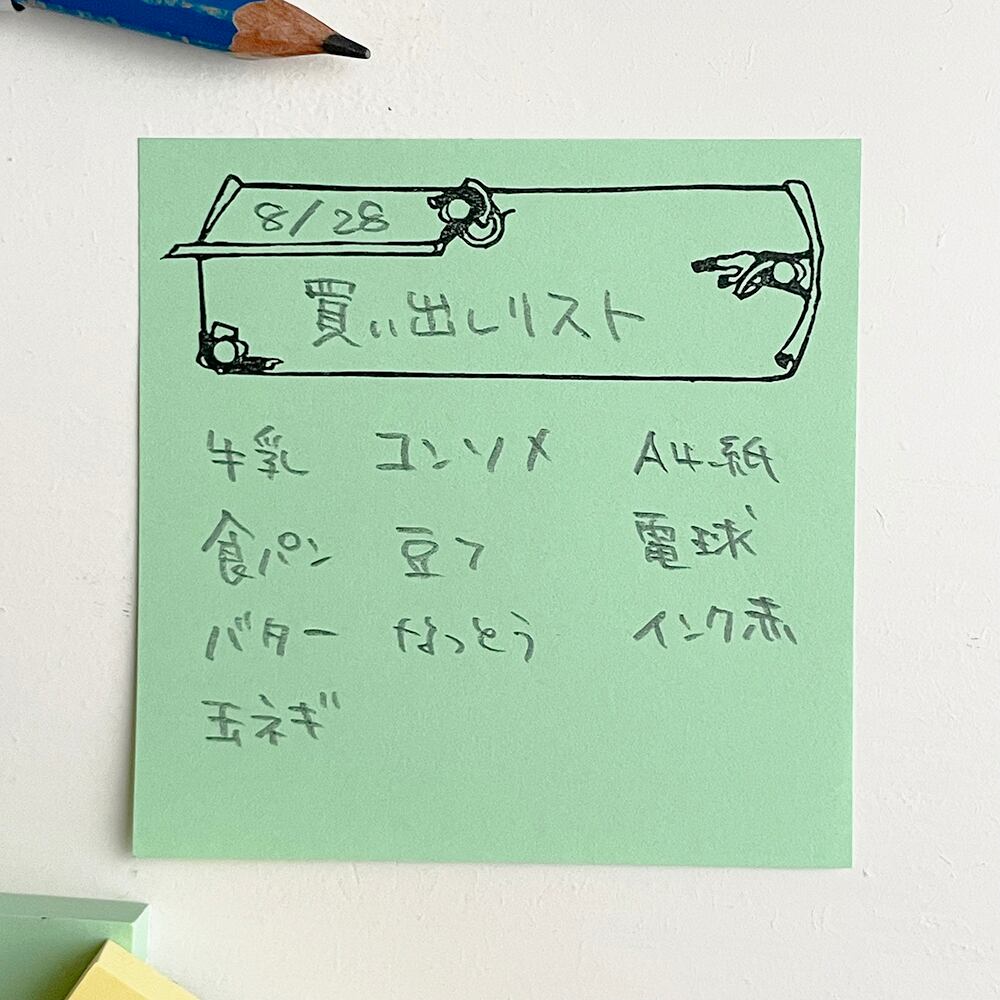 8/28
買い出しリスト
牛乳 コンソメ A4紙
食パン 豆フ 電球
バター なっとう インク赤
玉ネギ